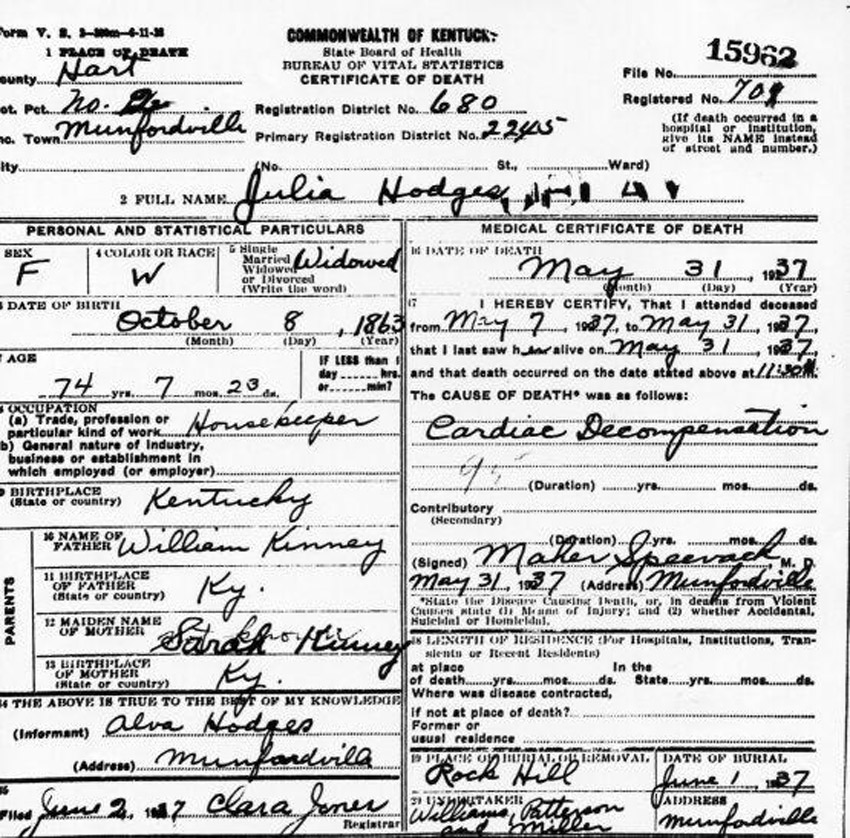 Form V. S.
COMMONWEALTH OF KENTUCKY
State Board of Health
BUREAU OF VITAL STATISTICS
CERTIFICATE OF DEATH
15962
File No.
1 PLACE OF DEATH
ounty Hart
ot. Pct. No.
nc. Town Munfordville
ity
Registration District No. 680
Primary Registration District No. 2245
(No. St., Ward)
Registered No. 701
(If death occurred in a
hospital or institution,
give its NAME instead
of street and number.)
2 FULL NAME Julia Hodges
PERSONAL AND STATISTICAL PARTICULARS
SEX
F
4 COLOR OR RACE
W
5 Single
Married
Widowed
or Divorced
(Write the word)
Widowed
DATE OF BIRTH
October 8, 1863
(Month) (Day) (Year)
AGE
74 yrs. 7 mos. 23 ds.
IF LESS than 1
day hrs.
or min?
OCCUPATION
(a) Trade, profession or
particular kind of work Housekeeper
b) General nature of industry,
business or establishment in
which employed (or employer)
9 BIRTHPLACE
(State or country) Kentucky
PARENTS
10 NAME OF
FATHER William Kinney
11 BIRTHPLACE
OF FATHER
(State or country) Ky.
12 MAIDEN NAME
OF MOTHER Sarah Kinney
13 BIRTHPLACE
OF MOTHER
(State or country) Ky.
14 THE ABOVE IS TRUE TO THE BEST OF MY KNOWLEDGE
(Informant) Alva Hodges
(Address) Munfordville
15
Filed June 2, 1937 Clara Jones
Registrar
MEDICAL CERTIFICATE OF DEATH
16 DATE OF DEATH
May 31, 1937
(Month) (Day) (Year)
17 I HEREBY CERTIFY, That I attended deceased
from May 7, 1937, to May 31, 1937,
that I last saw her alive on May 31, 1937,
and that death occurred on the date stated above at 11:30 m.
The CAUSE OF DEATH* was as follows:
Cardiac Decompensation
(Duration) yrs. mos. ds.
Contributory
(Secondary)
(Duration) yrs. mos. ds.
(Signed) Maher Speevack M. D.
May 31, 1937 (Address) Munfordville
*State the Disease Causing Death, or, in deaths from Violent
Causes state (1) Means of Injury; and (2) whether Accidental,
Suicidal or Homicidal.
18 LENGTH OF RESIDENCE (For Hospitals, Institutions, Tran-
sients or Recent Residents)
at place In the
of death yrs. mos. ds. State yrs. mos. ds.
Where was disease contracted,
if not at place of death?
Former or
usual residence
19 PLACE OF BURIAL OR REMOVAL
Rock Hill
DATE OF BURIAL
June 1, 1937
20 UNDERTAKER
Williams, Patterson
and Miller
ADDRESS
Munfordville